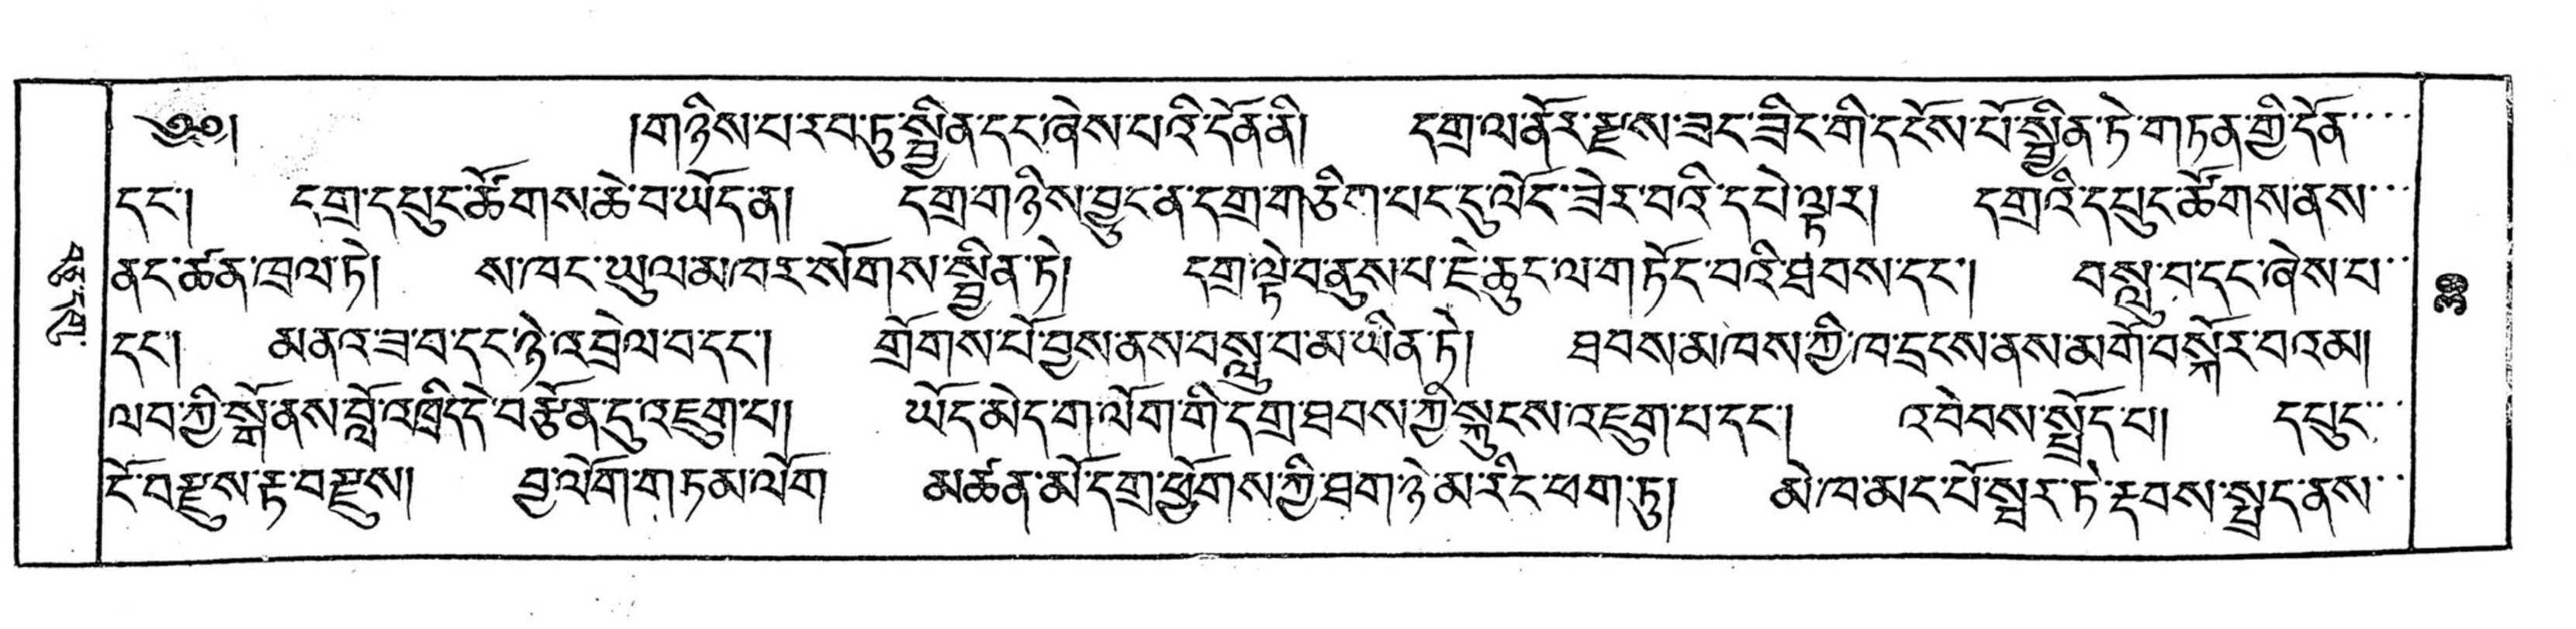 ༄༅། །གཉིས་པ་རབ་ཏུ་སྦྱིན་དང་ཞེས་པའི་དོན་ནི། དགྲ་ལ་ནོར་རྫས་ཟང་ཟིང་གི་དངོས་པོ་སྦྱིན་ཏེ་གཏན་གྱི་དོན་
དང་། དགྲ་དཔུང་ཚོགས་ཆེ་བ་ཡོད་ན། དགྲ་གཉིས་བྱུང་ན་དགྲ་གཅིག་པང་དུ་ལོང་ཟེར་བའི་དཔེ་ལྟར། དགྲའི་དཔུང་ཚོགས་ནས་
ནང་ཚན་ཁྲལ་ཏེ། ས་ཁང་ཡུལ་མཁར་སོགས་སྦྱིན་ཏེ། དགྲ་ལྟེ་བ་ནུས་པ་ཇེ་ཆུང་ལ་གཏོང་བའི་ཐབས་དང་། བསླུ་བ་དང་ཞེས་པ་
དང་། མནའ་ཟ་བ་དང་ཉེ་འབྲེལ་བ་དང་། གྲོགས་པོ་བྱས་ནས་བསླུ་བ་མ་ཡིན་ཏེ། ཐབས་མཁས་ཀྱི་ཁ་དྲངས་ནས་མགོ་བསྐོར་བའམ།
ལབ་ཀྱི་སྒོ་ནས་བློ་འཁྲིད་དེ་བརྩོན་དུ་འཇུག་པ། ཡོད་མེད་གལོག་གི་དགྲ་ཐབས་ཀྱི་སྐུངས་འཇུག་པ་དང་། འབེབས་སྤྲོད་པ། དཔུང་
ངོ་བརྫུས་རྟ་བརྫུས། བྱ་ལོག་གཏམ་ལོག མཚན་མོ་དགྲ་ཕྱོགས་ཀྱི་ཐག་ཉེ་མ་རིང་ཕག་ཏུ། མེ་ཁ་མང་པོ་སྦར་ཏེ་རྡབས་སྤྲད་ནས་